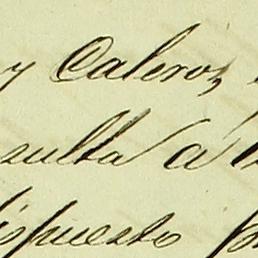 y Caleros,
sulta á
ispuesto